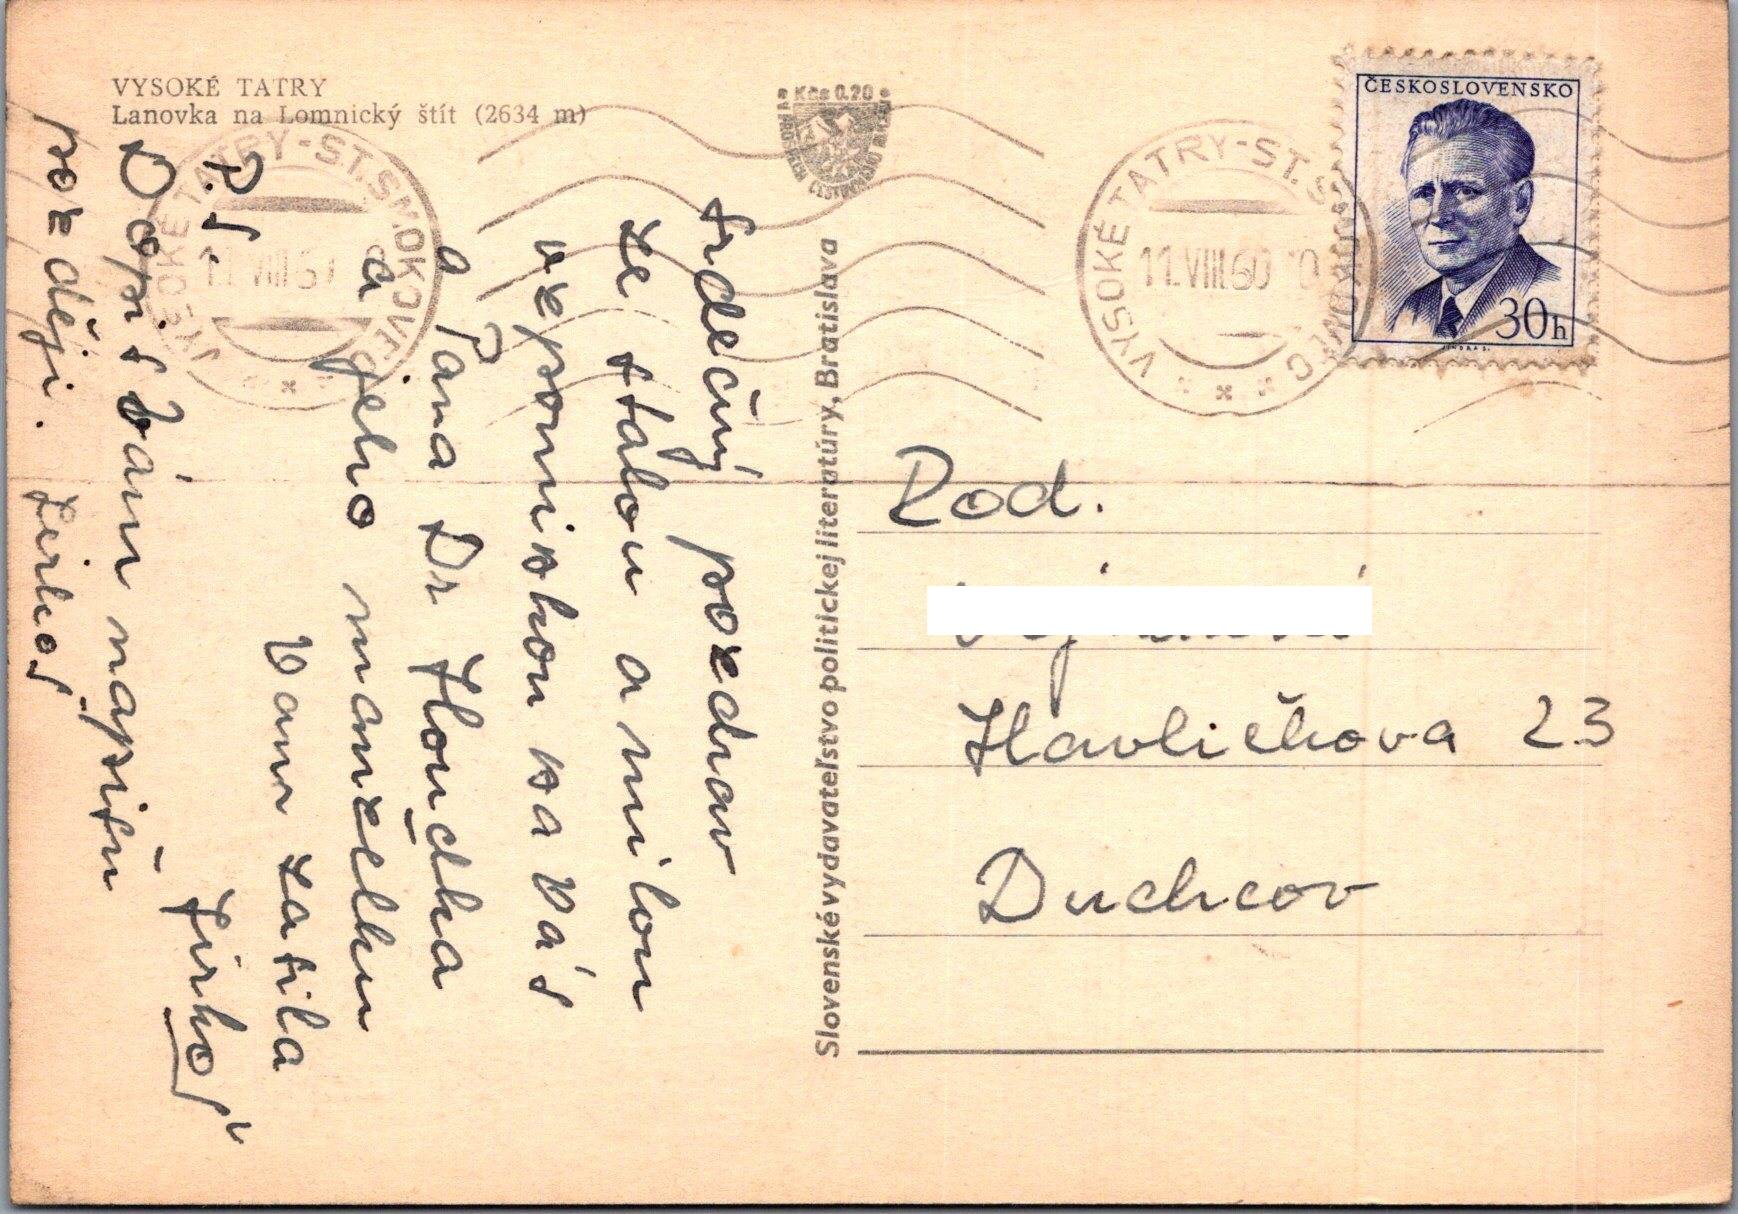 VYSOKÉ TATRY
Lanovka na Lomnický štít (2634 m)
Kčs 0.20
ČESKOSLOVENSKO
30h
VYSOKÉ TATRY-ST. SMOKOVEC
11.VIII.60
VYSOKÉ TATRY-ST.SMOKOVEC
11.VIII.60
Srdečný pozdrav
ze stálou a milou
vzpomínkou na Vás
a Pana Dr Houdka
a jeho manželku
Vám zasílá
Jirkoš
P.S.
Dopis Vám napíšu
později. Jirkoš
Slovenské vydavateľstvo politickej literatúry, Bratislava
Rod.
Havlíčkova 23
Duchcov